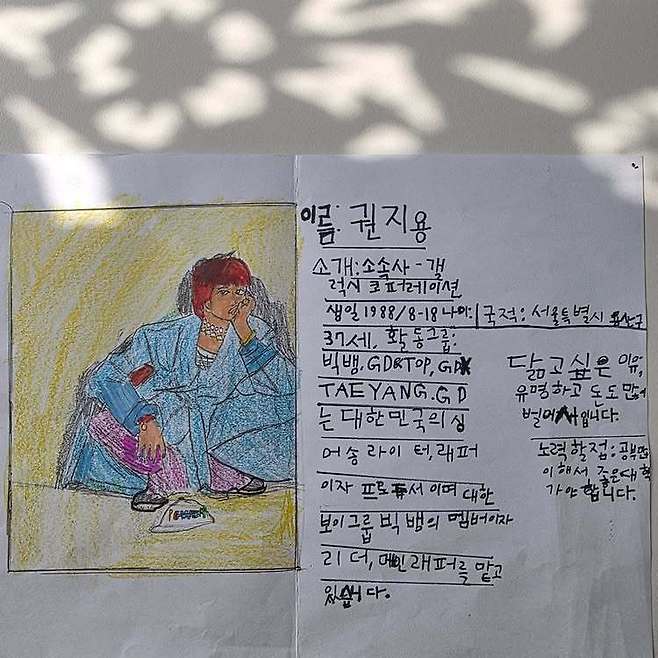 이름: 권지용
소개:소속사-갤
럭시 코퍼레이션
생일 1988/8-18 나이:
국적: 서울특별시 용산구
37세, 활동그룹:
빅뱅, GD&TOP, GDX
TAEYANG. GD
는 대한민국의 싱
어송라이터, 래퍼
이자 프로듀서 이며 대한
보이그룹 빅뱅의 멤버이자
리더, 메인래퍼를 맡고
있습니다.
닮고싶은 이유,
유명하고 돈도 많이
벌어서입니다.
노력할점: 공부많
이 해서 좋은대학
가야 합니다.
POWER